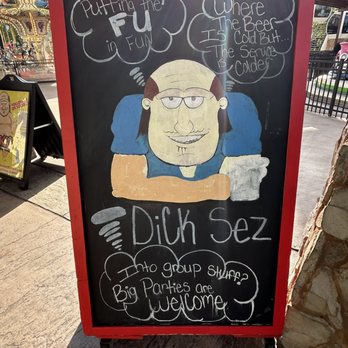 Putting the
FU
in Fun!
Where
The Beer
Is Cold But...
The Service
is Colder
Dick Sez
Into group Stuff?
Big Parties are
Welcome